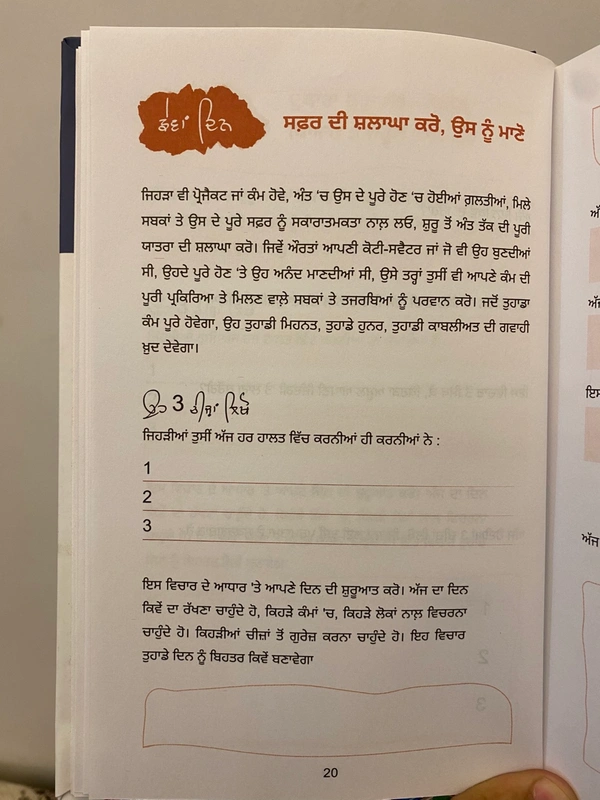 ਛੇਵਾਂ ਦਿਨ
ਸਫ਼ਰ ਦੀ ਸ਼ਲਾਘਾ ਕਰੋ, ਉਸ ਨੂੰ ਮਾਣੋ
ਜਿਹੜਾ ਵੀ ਪ੍ਰੋਜੈਕਟ ਜਾਂ ਕੰਮ ਹੋਵੇ, ਅੰਤ 'ਚ ਉਸ ਦੇ ਪੂਰੇ ਹੋਣ 'ਚ ਹੋਈਆਂ ਗ਼ਲਤੀਆਂ, ਮਿਲੇ
ਸਬਕਾਂ ਤੇ ਉਸ ਦੇ ਪੂਰੇ ਸਫ਼ਰ ਨੂੰ ਸਕਾਰਾਤਮਕਤਾ ਨਾਲ਼ ਲਓ, ਸ਼ੁਰੂ ਤੋਂ ਅੰਤ ਤੱਕ ਦੀ ਪੂਰੀ
ਯਾਤਰਾ ਦੀ ਸ਼ਲਾਘਾ ਕਰੋ। ਜਿਵੇਂ ਔਰਤਾਂ ਆਪਣੀ ਕੋਟੀ-ਸਵੈਟਰ ਜਾਂ ਜੋ ਵੀ ਉਹ ਬੁਣਦੀਆਂ
ਸੀ, ਉਹਦੇ ਪੂਰੇ ਹੋਣ 'ਤੇ ਉਹ ਅਨੰਦ ਮਾਣਦੀਆਂ ਸੀ, ਉਸੇ ਤਰ੍ਹਾਂ ਤੁਸੀਂ ਵੀ ਆਪਣੇ ਕੰਮ ਦੀ
ਪੂਰੀ ਪ੍ਰਕਿਰਿਆ ਤੇ ਮਿਲਣ ਵਾਲ਼ੇ ਸਬਕਾਂ ਤੇ ਤਜਰਬਿਆਂ ਨੂੰ ਪਰਵਾਨ ਕਰੋ। ਜਦੋਂ ਤੁਹਾਡਾ
ਕੰਮ ਪੂਰੇ ਹੋਵੇਗਾ, ਉਹ ਤੁਹਾਡੀ ਮਿਹਨਤ, ਤੁਹਾਡੇ ਹੁਨਰ, ਤੁਹਾਡੀ ਕਾਬਲੀਅਤ ਦੀ ਗਵਾਹੀ
ਖ਼ੁਦ ਦੇਵੇਗਾ।
ਉਹ 3 ਚੀਜ਼ਾਂ ਲਿਖੋ
ਜਿਹੜੀਆਂ ਤੁਸੀਂ ਅੱਜ ਹਰ ਹਾਲਤ ਵਿੱਚ ਕਰਨੀਆਂ ਹੀ ਕਰਨੀਆਂ ਨੇ :
1
2
3
ਇਸ ਵਿਚਾਰ ਦੇ ਆਧਾਰ 'ਤੇ ਆਪਣੇ ਦਿਨ ਦੀ ਸ਼ੁਰੂਆਤ ਕਰੋ। ਅੱਜ ਦਾ ਦਿਨ
ਕਿਵੇਂ ਦਾ ਰੱਖਣਾ ਚਾਹੁੰਦੇ ਹੋ, ਕਿਹੜੇ ਕੰਮਾਂ 'ਚ, ਕਿਹੜੇ ਲੋਕਾਂ ਨਾਲ਼ ਵਿਚਰਨਾ
ਚਾਹੁੰਦੇ ਹੋ। ਕਿਹੜੀਆਂ ਚੀਜ਼ਾਂ ਤੋਂ ਗੁਰੇਜ਼ ਕਰਨਾ ਚਾਹੁੰਦੇ ਹੋ। ਇਹ ਵਿਚਾਰ
ਤੁਹਾਡੇ ਦਿਨ ਨੂੰ ਬਿਹਤਰ ਕਿਵੇਂ ਬਣਾਵੇਗਾ
20